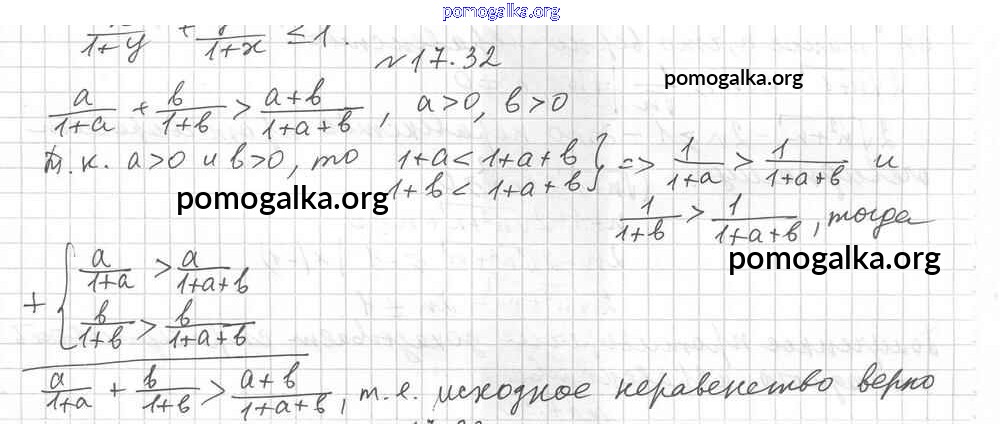 pomogalka.org
1+y + 1+x ≤ 1.
N 17.32
pomogalka.org
a/(1+a) + b/(1+b) > (a+b)/(1+a+b), a>0, b>0
Т.к. a>0 и b>0, то 1+a < 1+a+b } => 1/(1+a) > 1/(1+a+b) и
1+b < 1+a+b
pomogalka.org
1/(1+b) > 1/(1+a+b), тогда
pomogalka.org
+ { a/(1+a) > a/(1+a+b)
b/(1+b) > b/(1+a+b)
a/(1+a) + b/(1+b) > (a+b)/(1+a+b), т.е. исходное неравенство верно